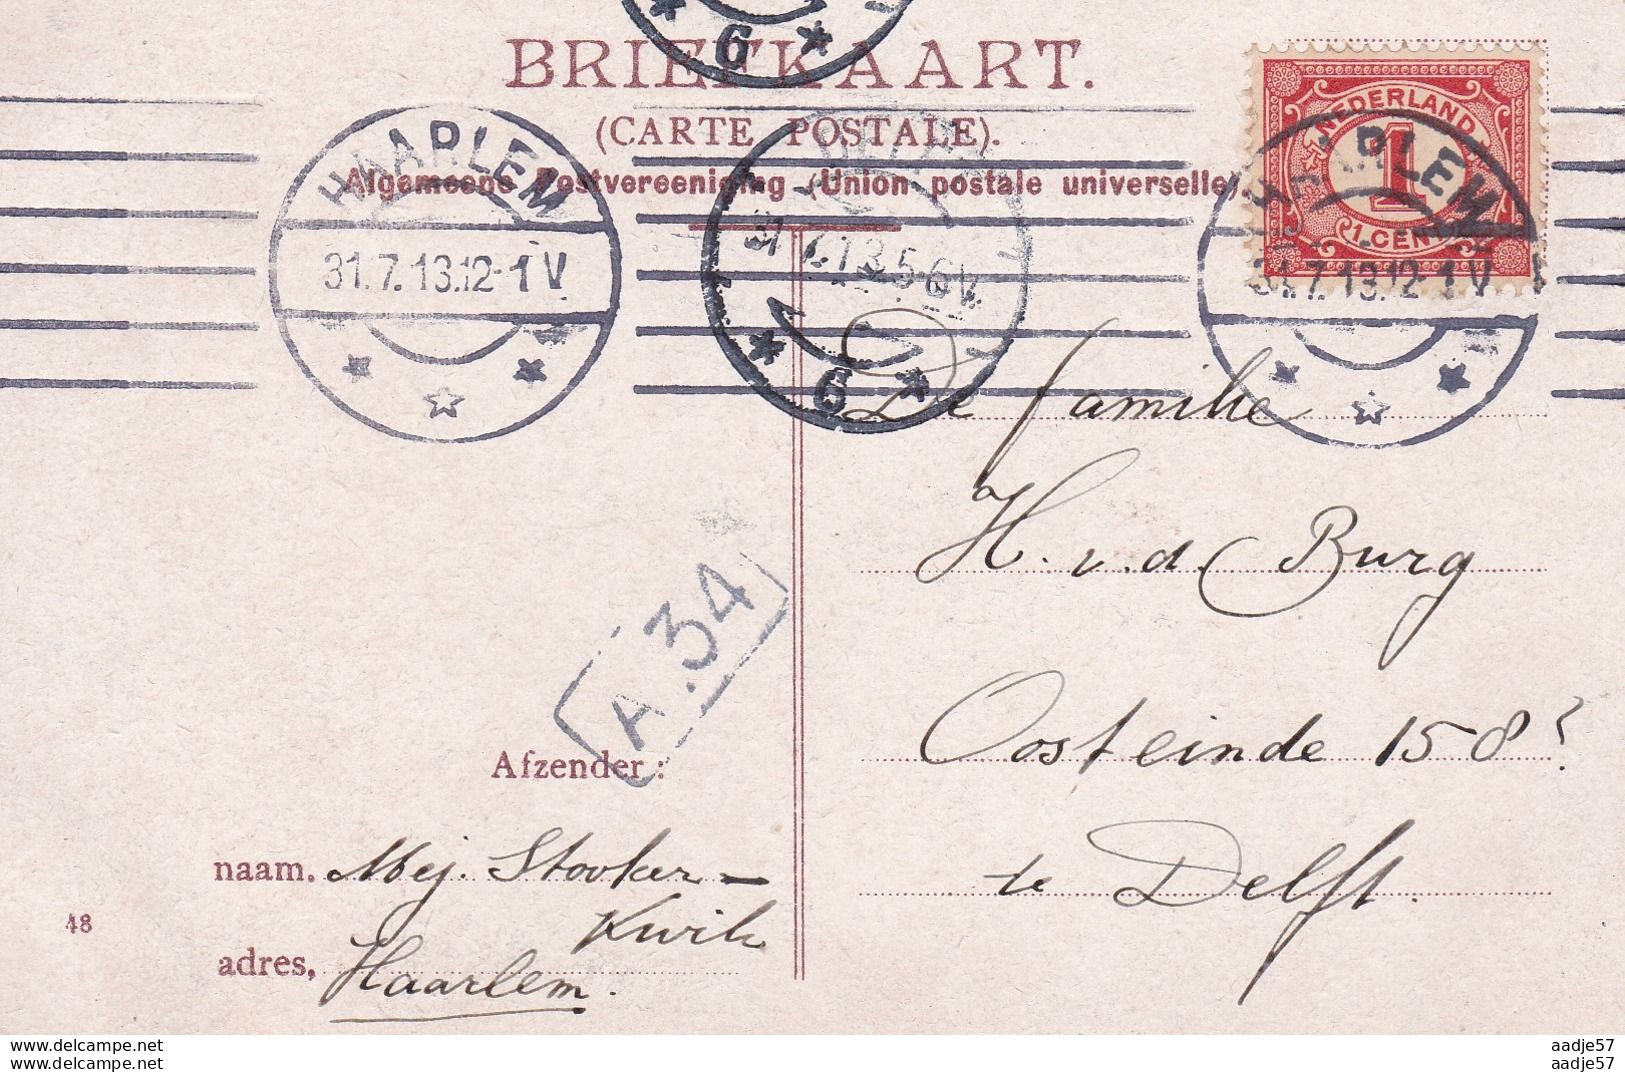 BRIEFKAART.
(CARTE POSTALE).
Algemeene Postvereeniging (Union postale universelle).
NEDERLAND
1
1 CENT
HAARLEM
31.7.13.12-1V
HAARLEM
31.7.13.12-1V
DELFT
5-6V
6
6
De familie
H. v. d. Burg
Oosteinde 158?
te Delft.
A.34
Afzender:
naam. Mej. Stooker-
Kwik
adres, Haarlem.
48
www.delcampe.net
www.delcampe.net
aadje57
aadje57